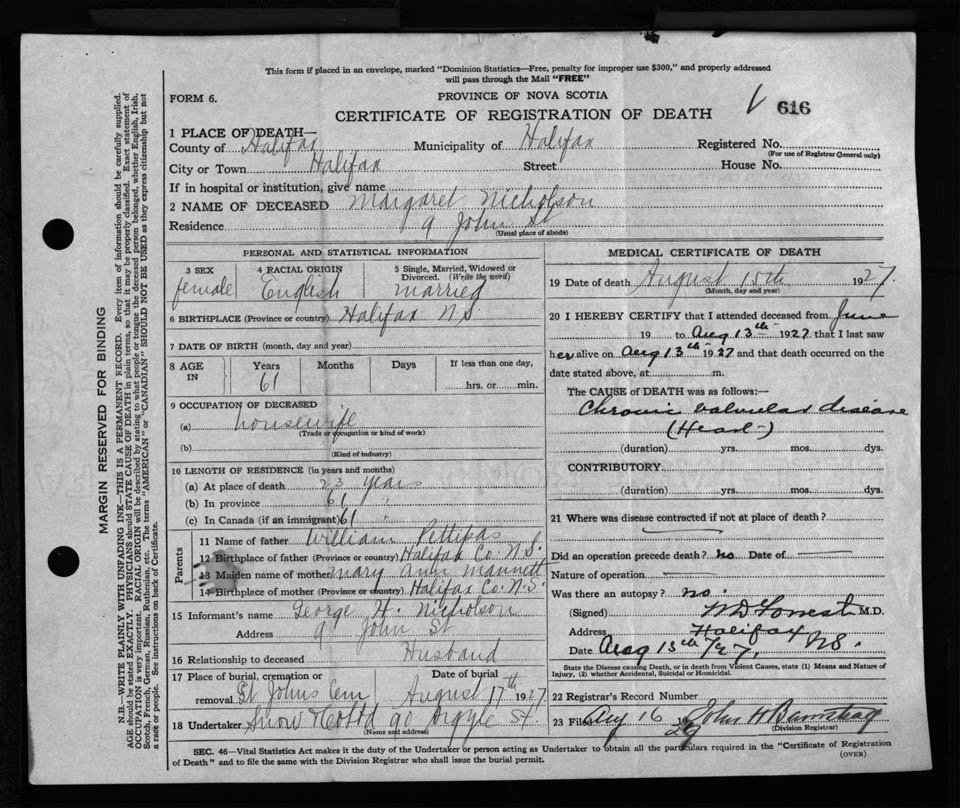 This form if placed in an envelope, marked "Dominion Statistics—Free, penalty for improper use $300," and properly addressed
will pass through the Mail "FREE"
FORM 6.
PROVINCE OF NOVA SCOTIA
CERTIFICATE OF REGISTRATION OF DEATH
616
1 PLACE OF DEATH—
County of Halifax Municipality of Halifax Registered No.
(For use of Registrar General only)
City or Town Halifax Street House No.
If in hospital or institution, give name
2 NAME OF DECEASED Margaret Nicholson
Residence 9 John St
(Usual place of abode)
PERSONAL AND STATISTICAL INFORMATION
3 SEX 4 RACIAL ORIGIN 5 Single, Married, Widowed or
Divorced. (Write the word)
female English married
6 BIRTHPLACE (Province or country) Halifax N.S.
7 DATE OF BIRTH (month, day and year)
8 AGE IN Years Months Days If less than one day,
61 hrs. or min.
9 OCCUPATION OF DECEASED
(a) housewife
(Trade or occupation or kind of work)
(b)
(Kind of industry)
10 LENGTH OF RESIDENCE (in years and months)
(a) At place of death 23 years
(b) In province 61 "
(c) In Canada (if an immigrant) 61 "
Parents
11 Name of father William Pettipas
12 Birthplace of father (Province or country) Halifax Co. N.S.
13 Maiden name of mother Mary Ann Mannett
14 Birthplace of mother (Province or country) Halifax Co. N.S.
15 Informant's name George H. Nicholson
Address 9 John St
16 Relationship to deceased Husband
17 Place of burial, cremation or removal Date of burial
St Johns Cem August 17th 1927
18 Undertaker Snow & Co Ltd 90 Argyle St.
(Name and address)
MEDICAL CERTIFICATE OF DEATH
19 Date of death August 15th 1927.
(Month, day and year)
20 I HEREBY CERTIFY that I attended deceased from June
19 to Aug 13th 1927 that I last saw
her alive on Aug 13th 1927 and that death occurred on the
date stated above, at m.
The CAUSE of DEATH was as follows:—
Chronic valvular disease
(Heart)
(duration) yrs. mos. dys.
CONTRIBUTORY
(duration) yrs. mos. dys.
21 Where was disease contracted if not at place of death?
Did an operation precede death? no Date of
Nature of operation
Was there an autopsy? no.
(Signed) W D Forrest M.D.
Address Halifax
Date Aug 15th /27. N.S.
State the Disease causing Death, or in death from Violent Causes, state (1) Means and Nature of
Injury, (2) whether Accidental, Suicidal or Homicidal.
22 Registrar's Record Number
23 Filed Aug 16 19 John H Barnstead
(Division Registrar)
SEC. 46—Vital Statistics Act makes it the duty of the Undertaker or person acting as Undertaker to obtain all the particulars required in the "Certificate of Registration
of Death" and to file the same with the Division Registrar who shall issue the burial permit. (OVER)
MARGIN RESERVED FOR BINDING
N.B.—WRITE PLAINLY WITH UNFADING INK—THIS IS A PERMANENT RECORD. Every item of information should be carefully supplied.
AGE should be stated EXACTLY. PHYSICIANS should STATE CAUSE OF DEATH in plain terms, so that it may be properly classified. Exact statement of
OCCUPATION is very important. RACIAL ORIGIN will be described by stating to what people or tongue the deceased person belonged, whether English, Irish,
Scotch, French, German, Russian, Ruthenian, etc. The terms "AMERICAN" or "CANADIAN" SHOULD NOT BE USED as they express citizenship but not
a race or people. See instructions on back of Certificate.